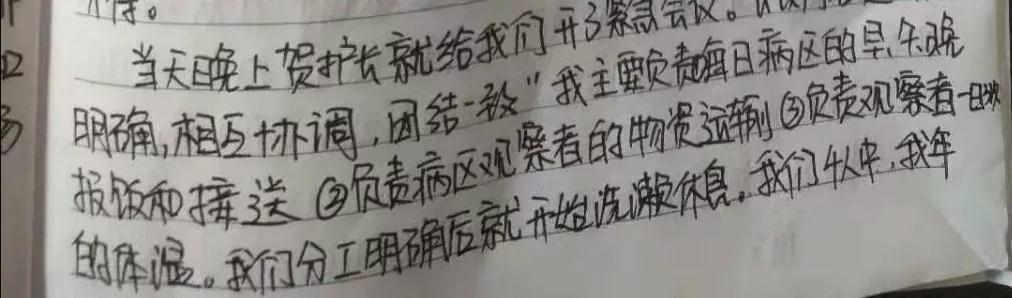 当天晚上贺护长就给我们开了紧急会议。
明确,相互协调,团结一致"我主要负责每日病区的早午晚
报饭和接送②负责病区观察者的物资运输③负责观察者一日
的体温。我们分工明确后就开始洗濑休息。我们4人中,我年